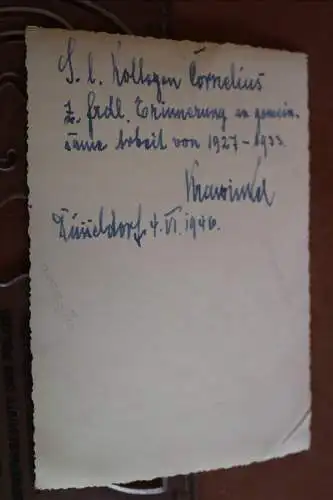 S. l. Kollegen Cornelius
z. frdl. Erinnerung an gemein-
same Arbeit von 1927-1933.
Krawinkel
Düsseldorf, 4. VI. 1946.